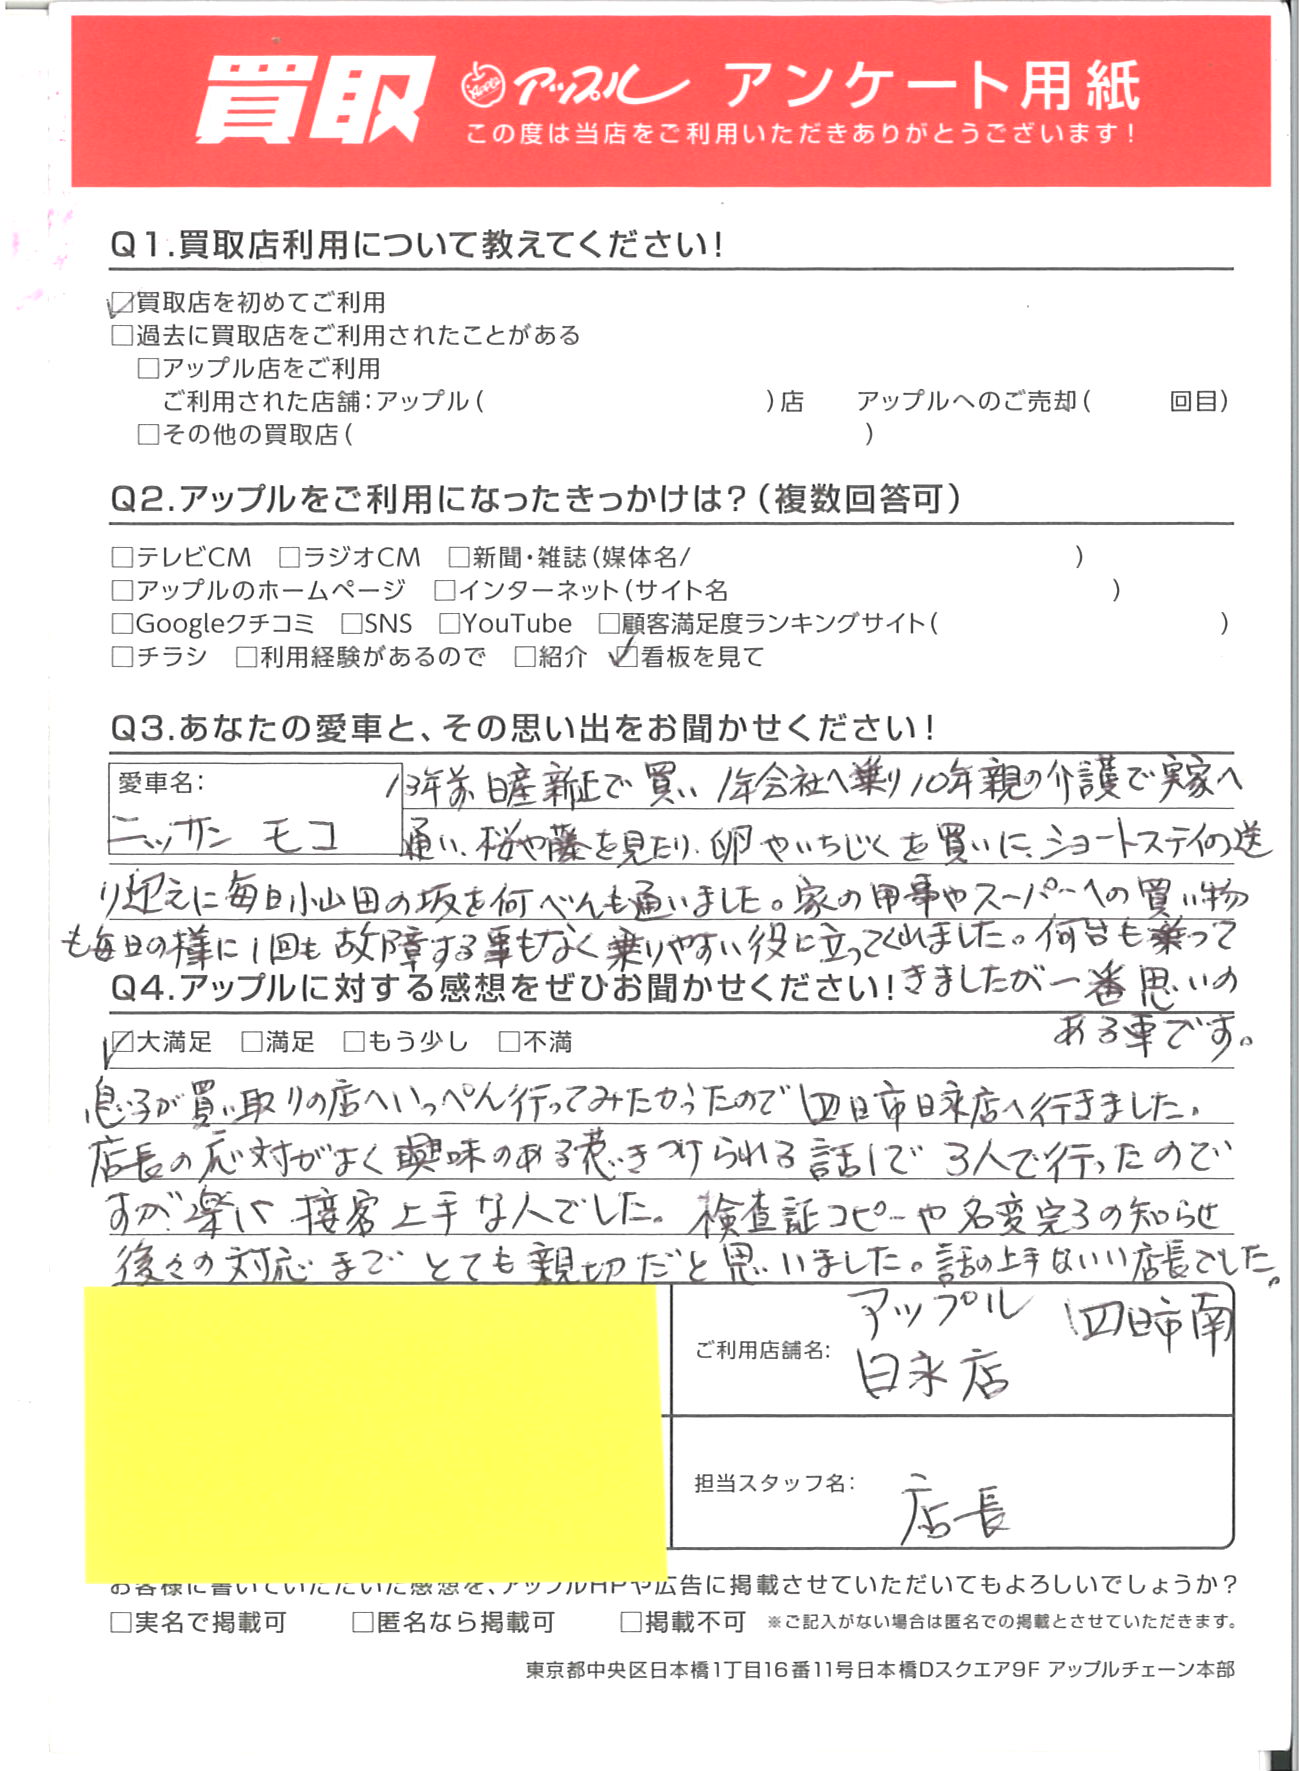 買取 アップル アンケート用紙
この度は当店をご利用いただきありがとうございます！
Q1.買取店利用について教えてください！
☑買取店を初めてご利用
□過去に買取店をご利用されたことがある
□アップル店をご利用
ご利用された店舗：アップル（　　　）店　アップルへのご売却（　　　回目）
□その他の買取店（　　　）
Q2.アップルをご利用になったきっかけは？（複数回答可）
□テレビCM □ラジオCM □新聞・雑誌（媒体名/　　　）
□アップルのホームページ □インターネット（サイト名　　　）
□Googleクチコミ □SNS □YouTube □顧客満足度ランキングサイト（　　　）
□チラシ □利用経験があるので □紹介 ☑看板を見て
Q3.あなたの愛車と、その思い出をお聞かせください！
愛車名：
ニッサン モコ
13年前 日産新正で買い 1年会社へ乗り10年親の介護で実家へ
通い、桜や藤を見たり、卵やいちじくを買いに、ショートステイの送
り迎えに毎日小山田の坂を何べんも通いました。家の用事やスーパーへの買い物
も毎日の様に1回も故障する事もなく乗りやすい役に立ってくれました。何台も乗って
きましたが一番思いの
ある車です。
Q4.アップルに対する感想をぜひお聞かせください！
☑大満足 □満足 □もう少し □不満
息子が買い取りの店へいっぺん行ってみたかったので四日市日永店へ行きました。
店長の応対がよく興味のある惹きつけられる話しで 3人で行ったので
すが、楽しい 接客上手な人でした。検査証コピーや名変完了の知らせ
後々の対応までとても親切だと思いました。話の上手ないい店長でした。
ご利用店舗名：
アップル 四日市南
日永店
担当スタッフ名：
店長
お客様に書いていただいた感想を、アップルHPや広告に掲載させていただいてもよろしいでしょうか？
□実名で掲載可 □匿名なら掲載可 □掲載不可 ※ご記入がない場合は匿名での掲載とさせていただきます。
東京都中央区日本橋1丁目16番11号日本橋Dスクエア9F アップルチェーン本部